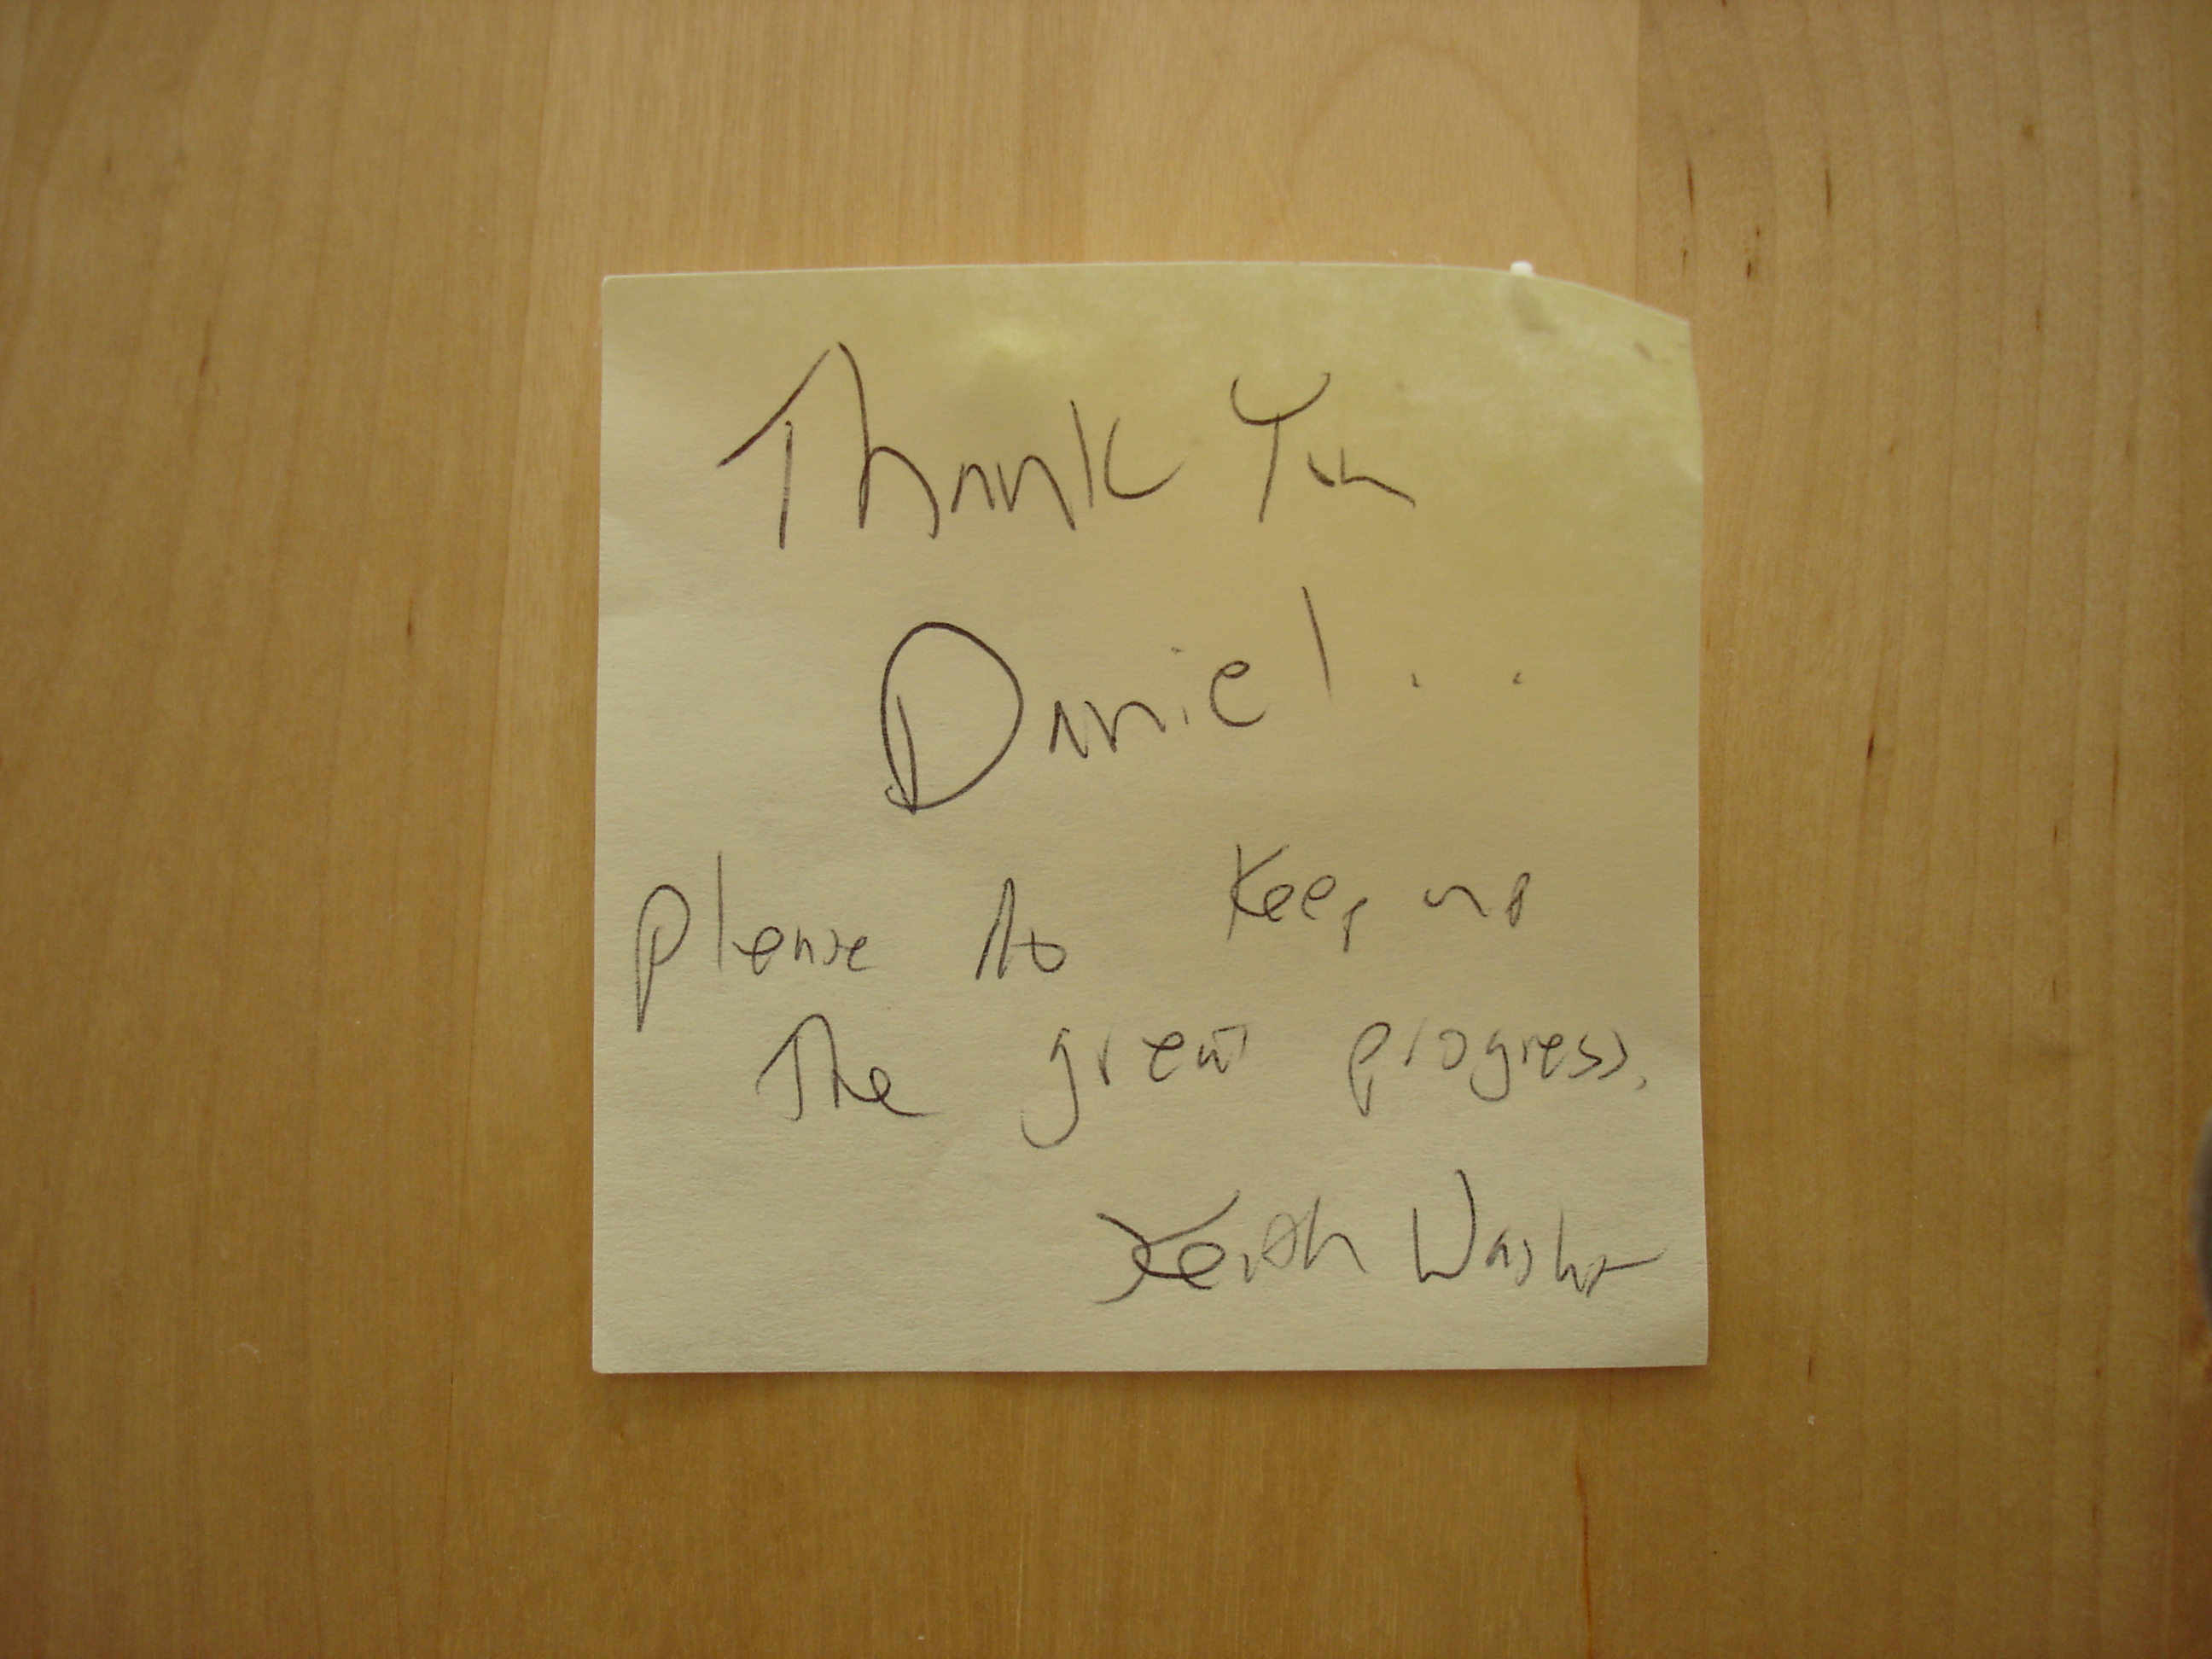 Thank You
Daniel..
please do keep up
The great progress.
Keith